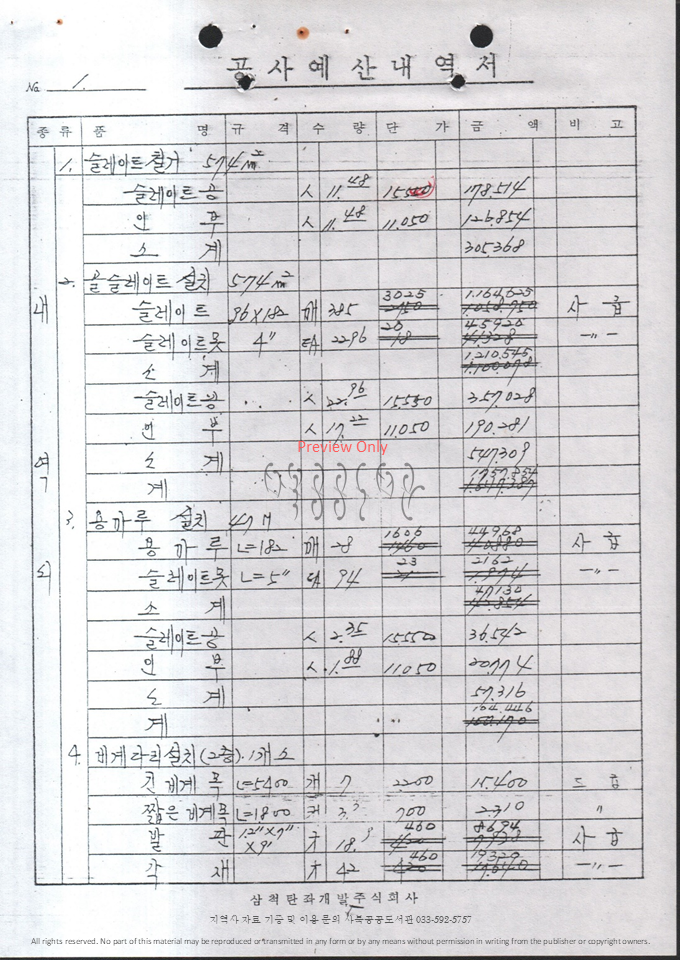 공사예산내역서
No 1.
종류 품 명 규 격 수 량 단 가 금 액 비 고
1. 슬레이트철거 574m²
슬레이트공 人 11.48 15.550 178.514
인 부 人 11.48 11.050 126.854
소 계 305.368
2. 골슬레이트 설치 574m²
3025 1.164.625
슬레이트 96×182 매 385 2750 1.058.750 사 급
20 45920
슬레이트못 4" EA 2296 18 41.328 -〃-
1.210.545
소 계 1.100.078
슬레이트공 人 22.96 15.550 357.028
인 부 人 17.22 11.050 190.281
소 계 547.309
1757.854
계 1.647.387
3. 용마루 설치 47M
1606 44968
용 마 루 L=182 매 28 1460 40.880 사 급
23 2162
슬레이트못 L=5" EA 94 21 1.974 -〃-
47130
소 계 42.854
슬레이트공 人 2.35 15550 36.542
인 부 人 1.88 11.050 20.774
소 계 57.316
104.446
계 100.170
4. 비계다리설치(2층) 1개소
긴 비계 목 L=5400 개 7 2.200 15.400 도 급
짧은 비계목 L=1800 개 3.3 700 2.310 〃
460 8694
발 판 1.2"×7"×9' 才 18.9 420 7.938 사 급
460 19.320
각 재 才 42 420 17.640 -〃-
내 역 외
삼척탄좌개발주식회사
지역사 자료 기증 및 이용 문의 사북공공도서관 033-592-5757
Preview Only
All rights reserved. No part of this material may be reproduced or transmitted in any form or by any means without permission in writing from the publisher or copyright owners.